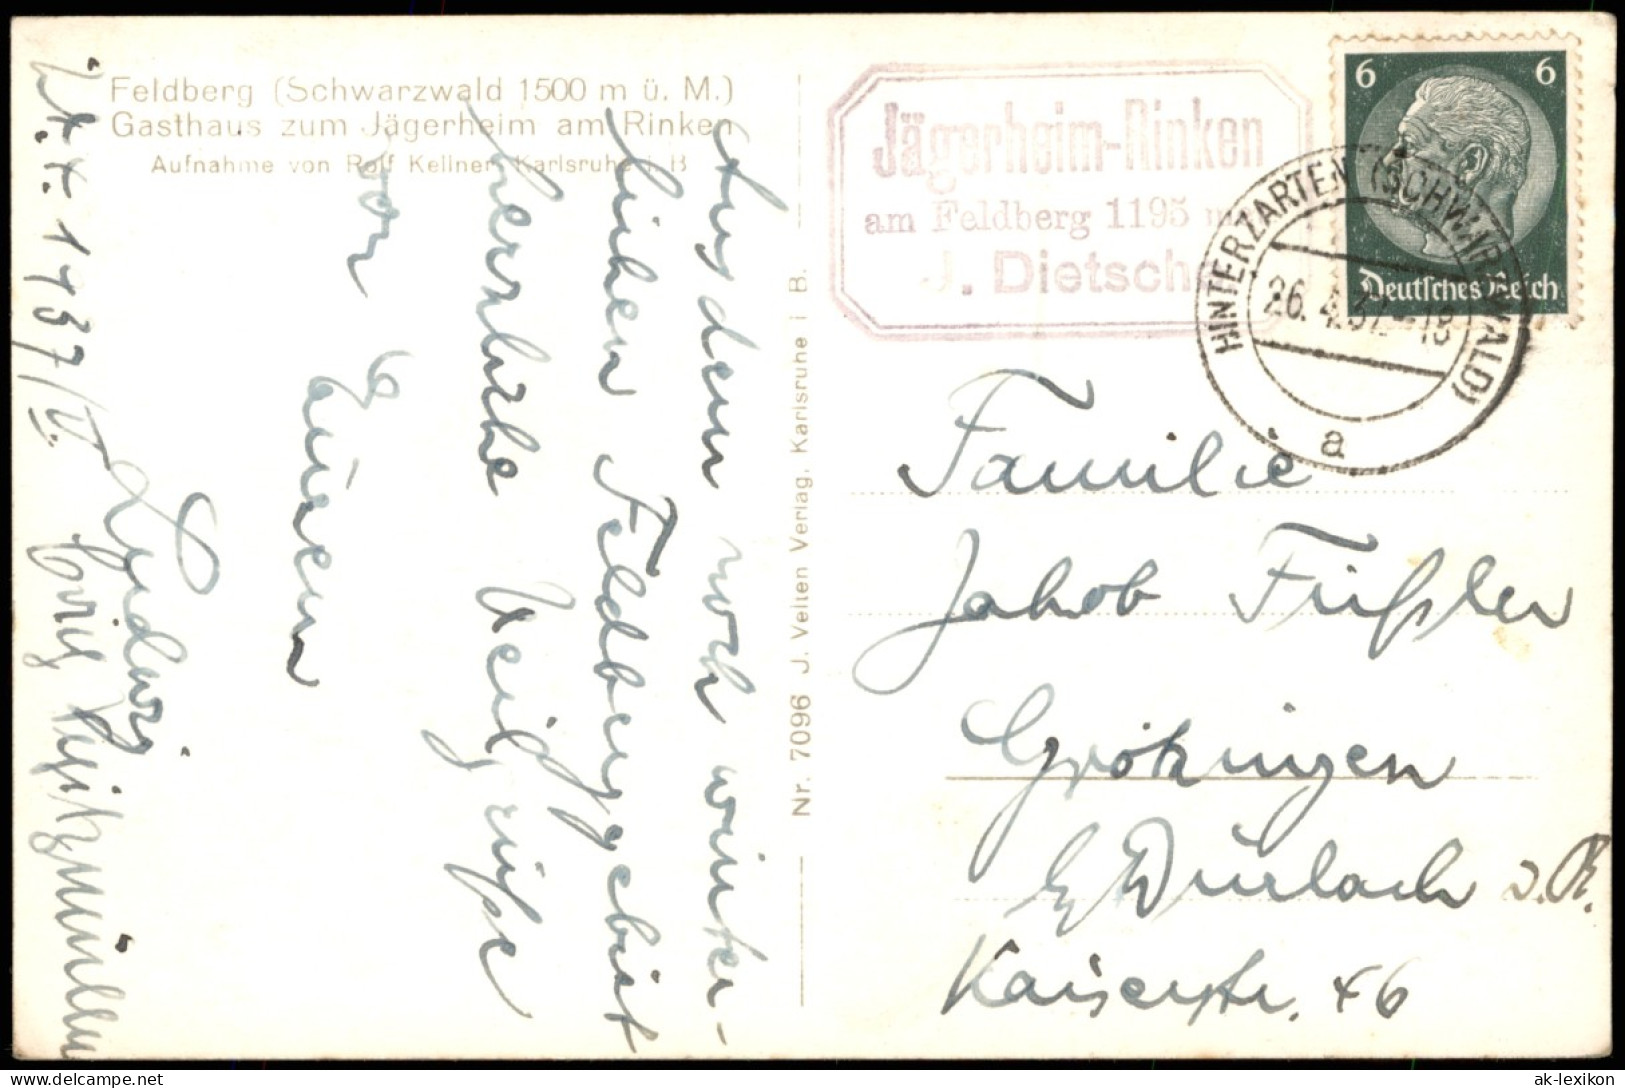 Feldberg (Schwarzwald 1500 m ü. M.)
Gasthaus zum Jägerheim am Rinken
Aufnahme von Rolf Kellner, Karlsruhe i. B
Aus dem noch winter-
lichen Feldberggebiet
herrliche Skigrüße
von
Eurem
Ludwig
1937/
Nr. 7096 J. Velten Verlag, Karlsruhe i B.
Jägerheim-Rinken
am Feldberg 1195 m
J. Dietsche
6 6
Deutsches Reich
HINTERZARTEN (SCHWARZWALD)
26.4.37.-18
a
Familie
Jakob Füßler
Grötzingen
b/ Durlach
Kaiserstr. 46
ak-lexikon